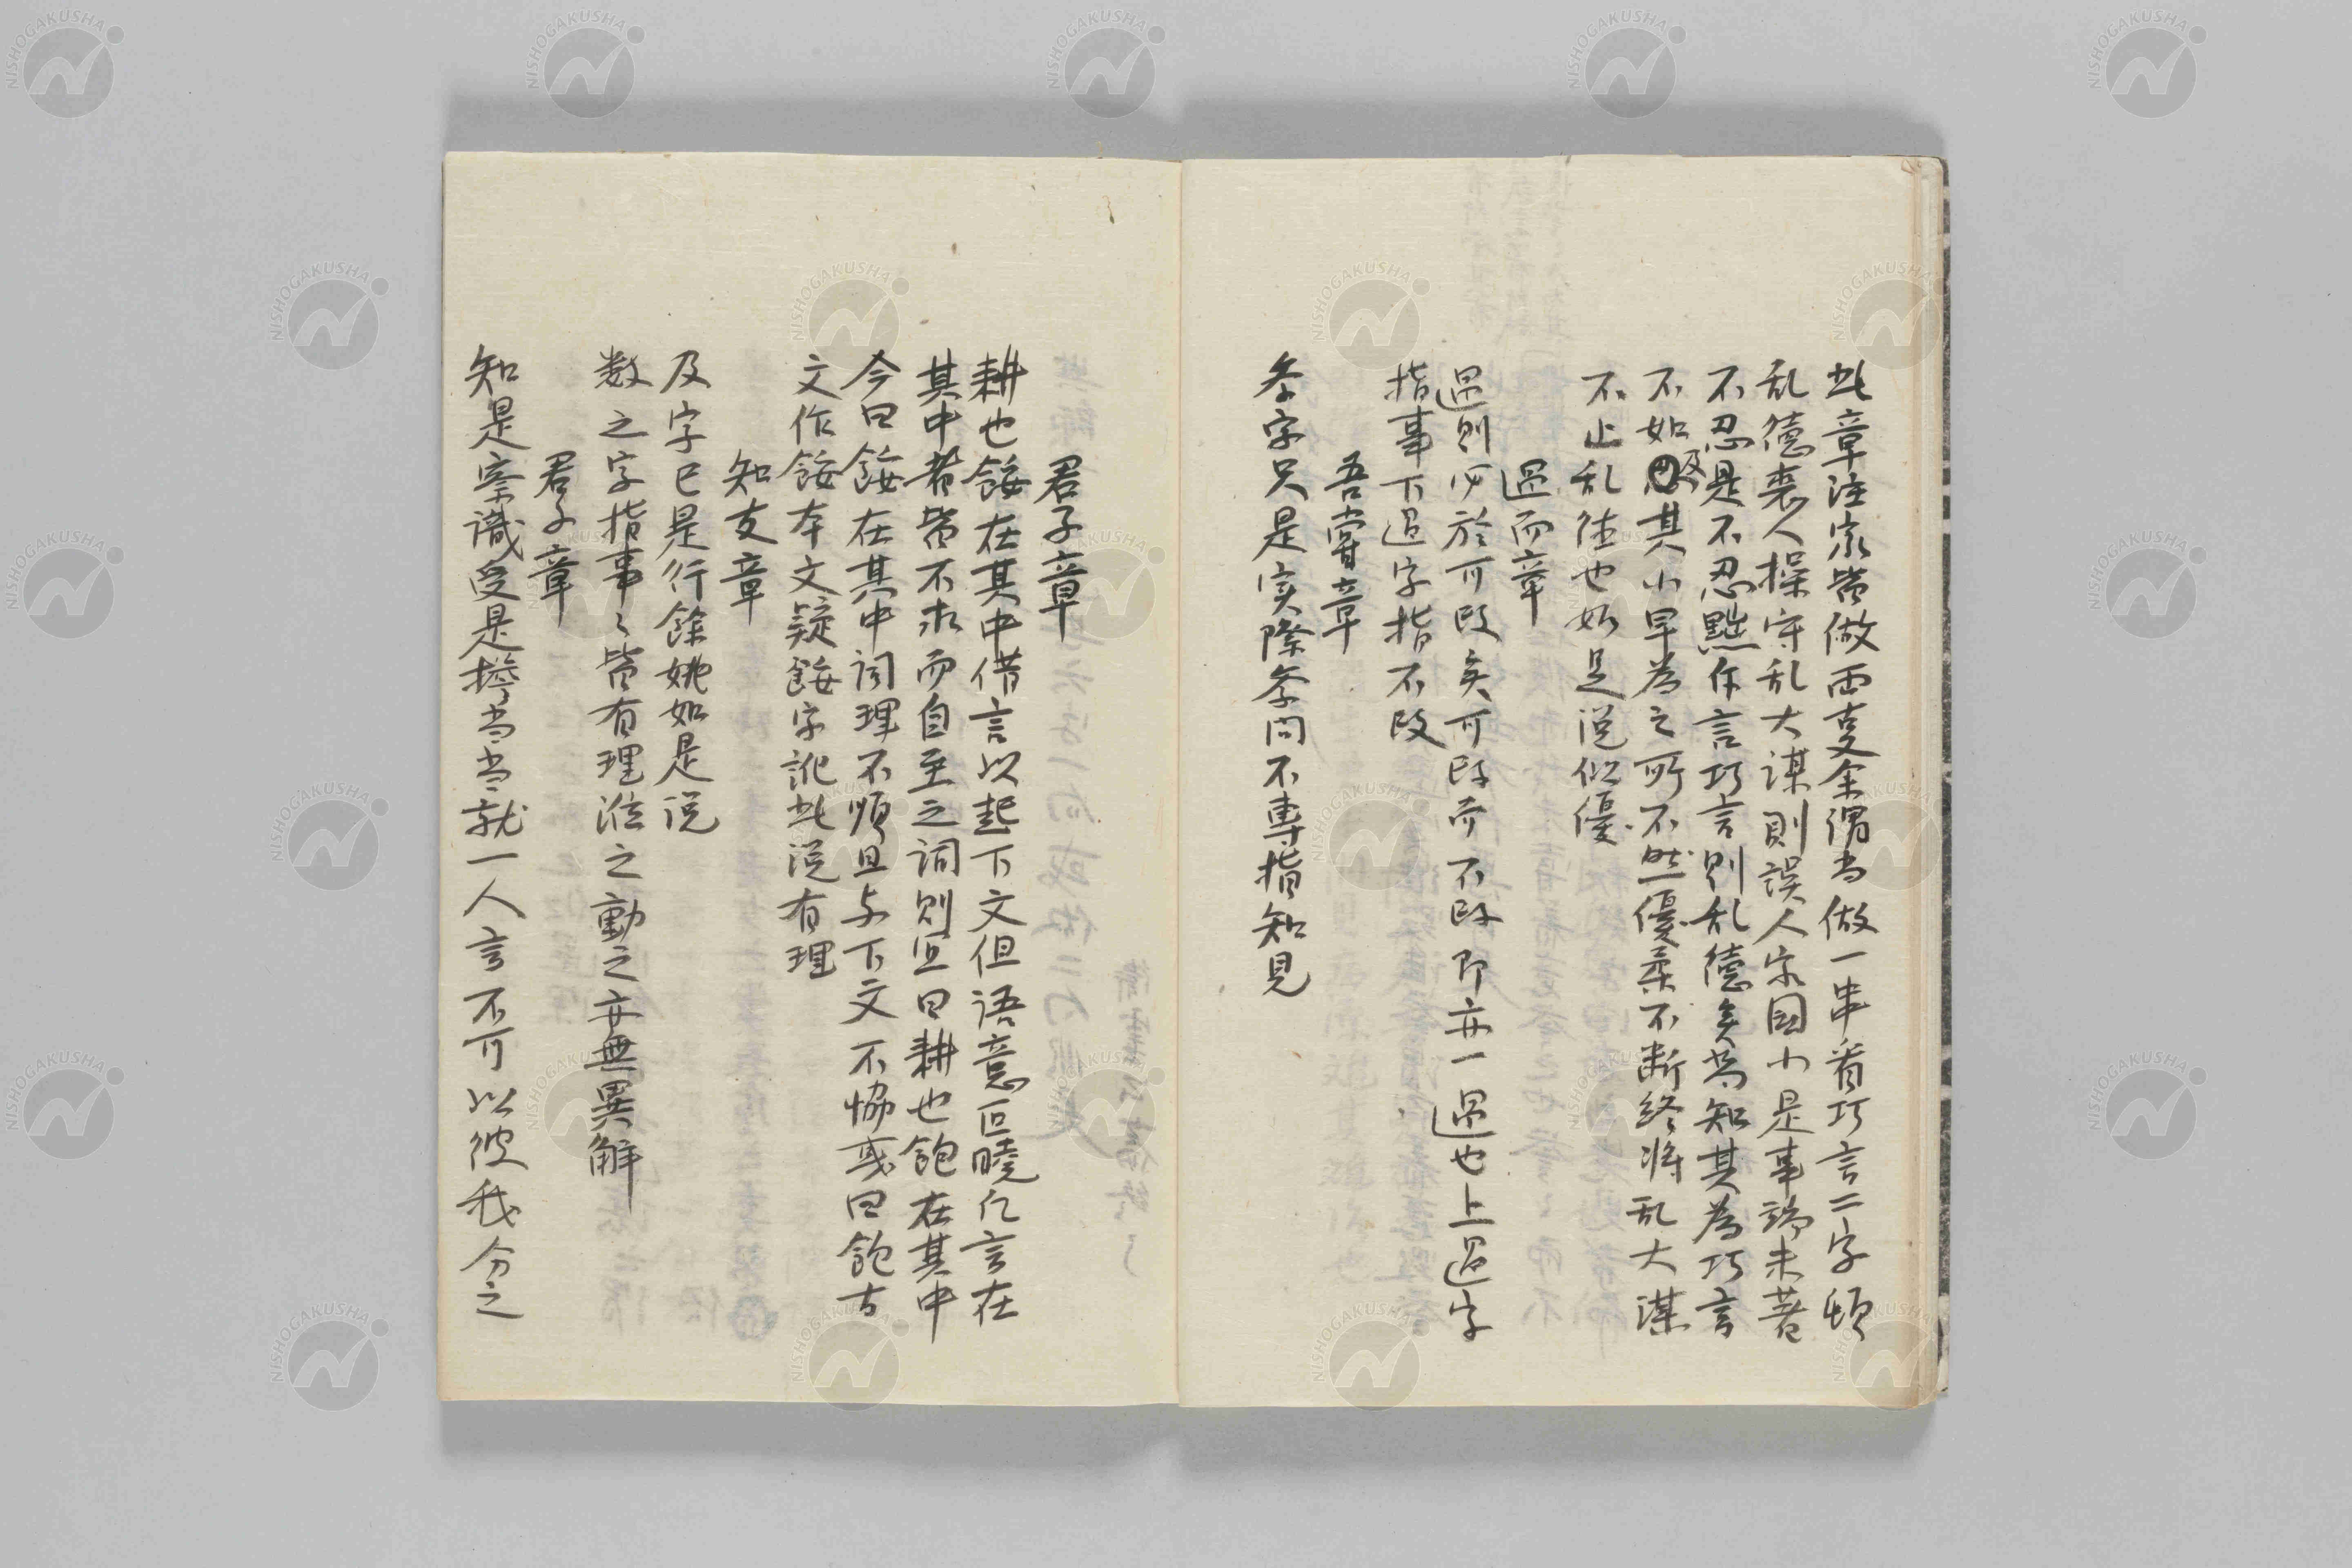 此章注家皆做両支余謂当做一串看巧言二字頓
乱德喪人操守乱大謀則誤人家国小是事端未著
不忍是不忍黙作言巧言則乱德矣苟知其為巧言
不如及其小早為之所不然優柔不断終将乱大謀
不止乱德也如是説似優
過而章
過則必於可改矣可改而不改即亦一過也上過字
指事下過字指不改
吾嘗章
学字只是実際学問不専指知見
君子章
耕也餒在其中借言以起下文但語意叵暁凡言在
其中者皆不求而自至之詞則宜曰耕也飽在其中
今曰餒在其中詞理不順且与下文不協或曰飽古
文作餒本文疑餒字訛此説有理
知支章
及字已是行餘姚如是説
数之字指事〻皆有理涖之動之亦無異解
君子章
知是察識受是擔当当就一人言不可以彼我分之
NISHOGAKUSHA